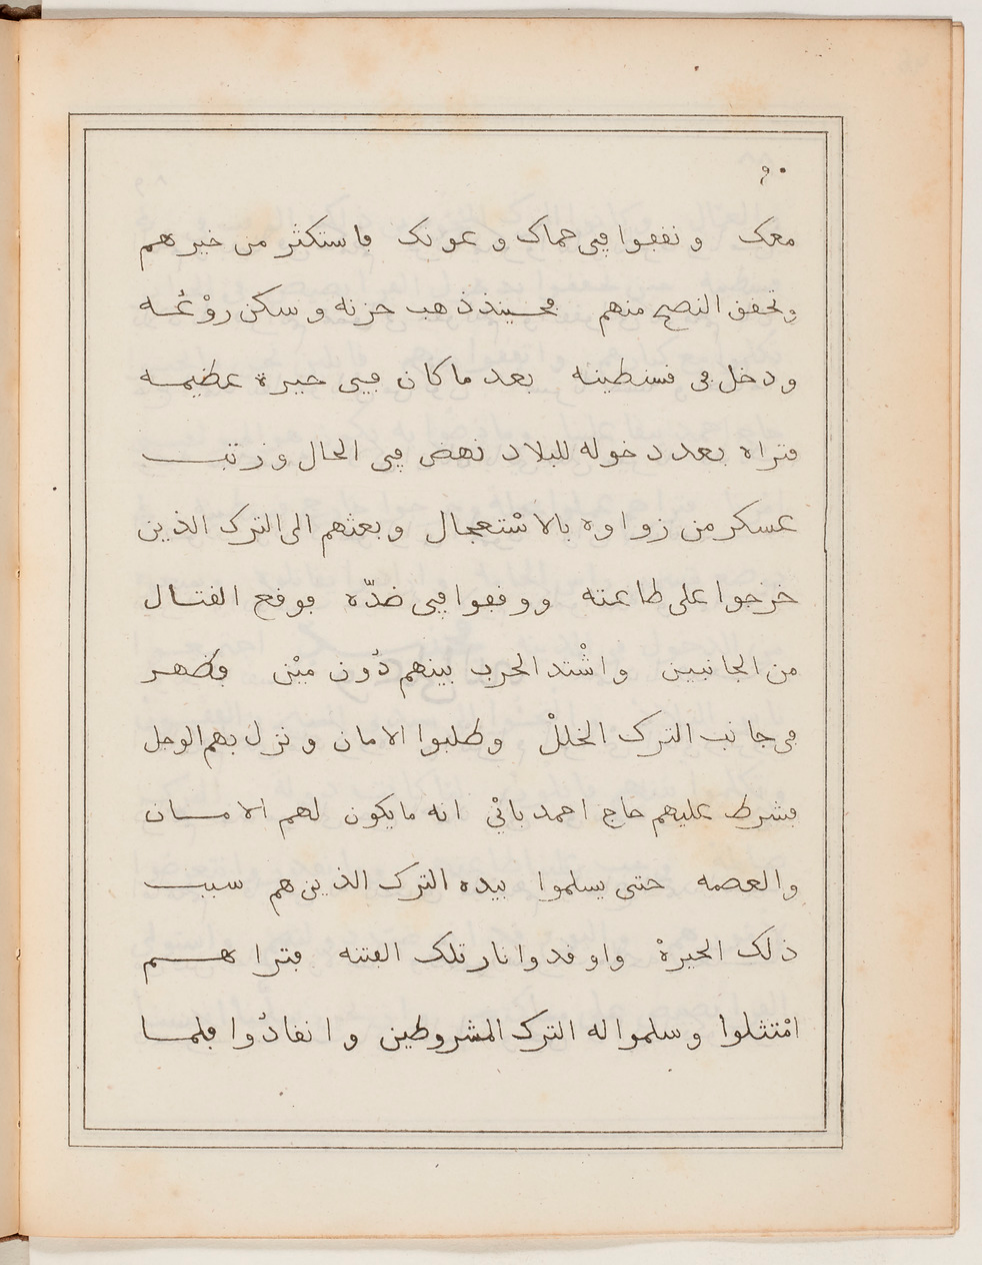 ٩٠
معك ونقبوا في حماك وعونك فاستكثر من خيرهم
وتحقق النصح منهم فحينئذ ذهب حزنه وسكن روْعُه
ودخل في قسنطينه بعد ما كان في حيرة عظيمه
فتراه بعد دخوله للبلاد نهض في الحال ورتب
عسكر من زواوه بالاسْتعجال وبعثهم الى الترك الذين
خرجوا على طاعته ووقفوا في ضدّه فوقع القتال
من الجانبين واشْتد الحرب بينهم دُون ميْن فظهر
في جانب الترك الخللْ وطلبوا الامان ونزل بهم الوجل
فشرط عليهم حاج احمد باىْ انه ما يكون لهم الامان
والعصمه حتى يسلموا بيده الترك الذين هم سبب
ذلك الحيرةْ واوقدوا نار تلك الفتنه فتراهم
امْتثلوا وسلموا له الترك المشروطين وانقادُوا فلما